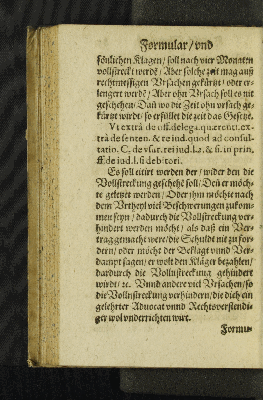 Formular/vnd
sönlichen Klagen/ soll nach vier Monaten
vollstreckt werdẽ/ Aber solche zeit mag auß
rechtmessigen Vrsachen gekürtzt/ oder er-
lengert werdẽ/ Aber ohn Vrsach soll es nit
geschehen/ Dañ wo die Zeit ohn vrsach ge-
kürtzt wird/ so erfüllet die zeit das Gesetze.
Vt extrà de off. deleg. c. quærenti. ex-
trà de senten. & re iud. quod ad consul-
tatio. C. de vsur. rei iud. l. 2. & fi. in prin.
ff. de iud. l. si debitori.
Es soll citirt werden der/ wider den die
Vollstreckung geschehẽ soll/ Deñ er möch-
te getötet werden/ Oder ihm möcht nach
dem Vrtheyl viel Beschwerungen zukom-
men seyn/ dadurch die Vollstreckung ver-
hindert werden möcht/ als daß ein Ver-
trag gemacht were/ die Schuldt nit zu for-
dern/ oder möcht der Beklagt vnnd Ver-
dampt sagen/ er wolt den Kläger bezahlen/
dardurch die Vollstreckung gehindert
wirdt/ ꝛc. Vnnd andere viel Vrsachen/ so
die Vollnstreckung verhindern/ die dich ein
gelehrter Advocat vnnd Rechtsverstendi-
ger wol vnderrichten wirt.
Formu-